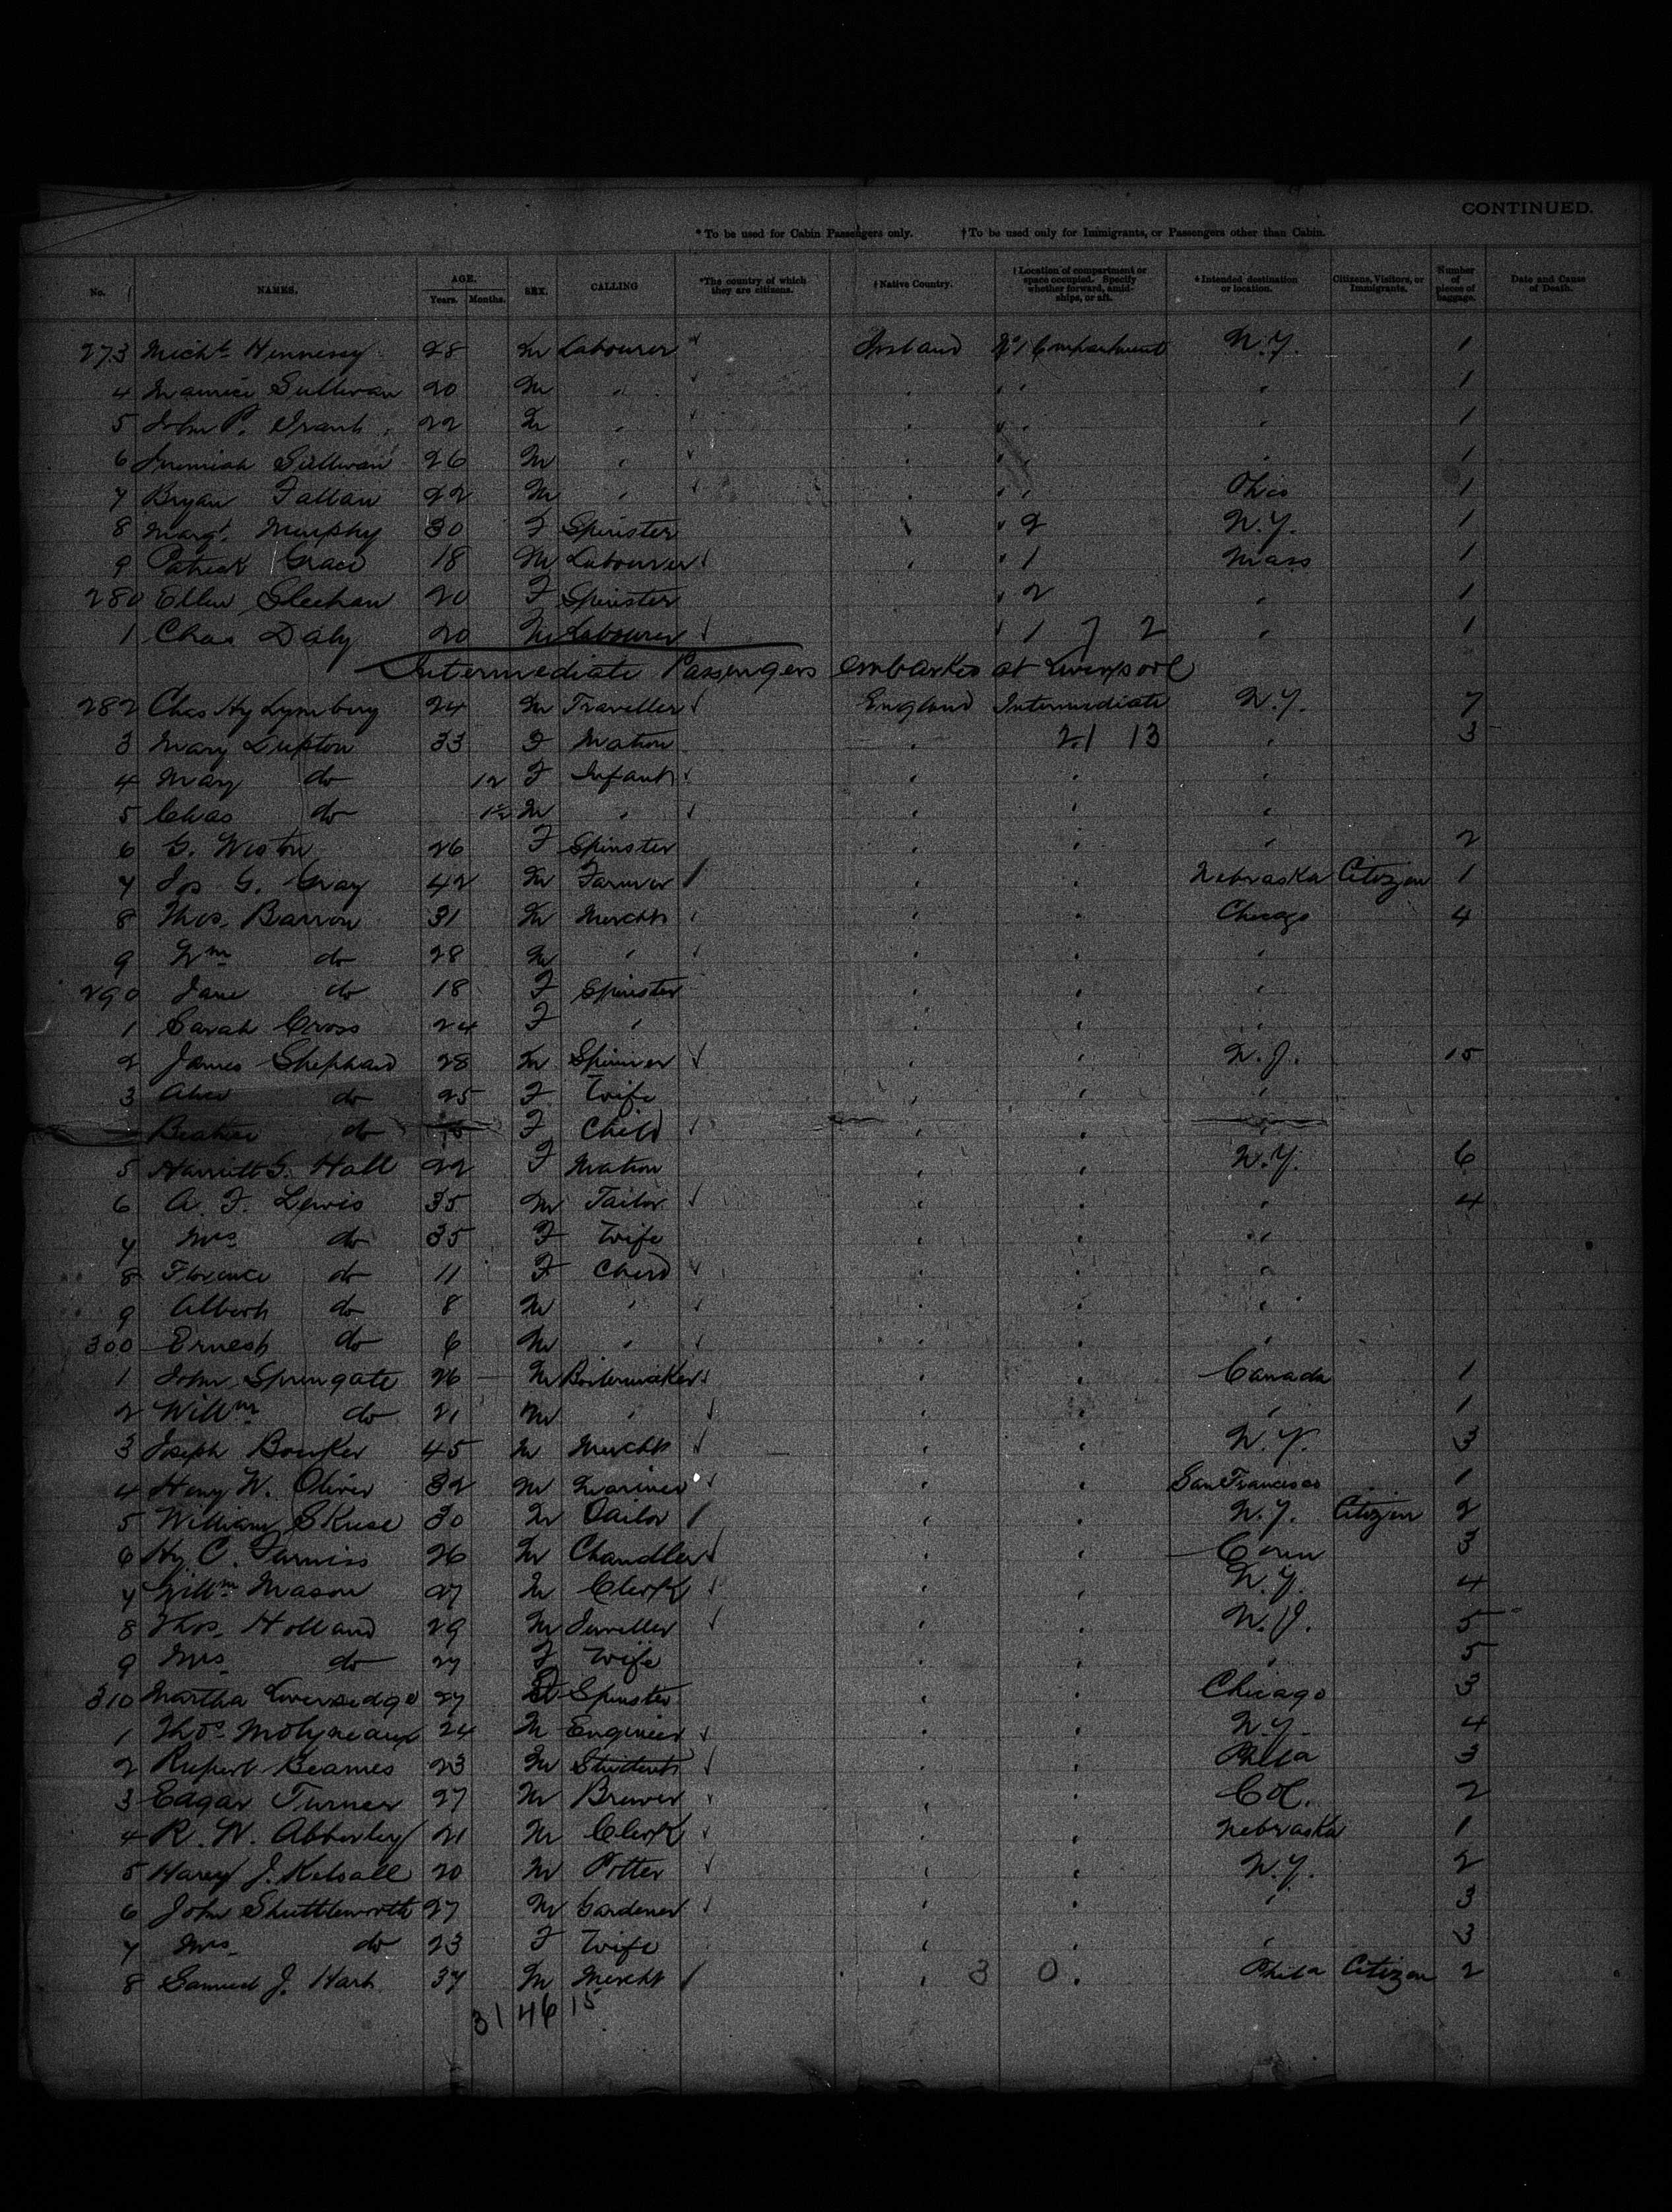 CONTINUED.
* To be used for Cabin Passengers only. † To be used only for Immigrants, or Passengers other than Cabin.
No. NAMES. AGE. Years. Months. SEX. CALLING *The country of which they are citizens. †Native Country. †Location of compartment or space occupied. Specify whether forward, amidships, or aft. *Intended destination or location. Citizens, Visitors, or Immigrants. Number of pieces of baggage. Date and Cause of Death.
273 Micht Hennessy 28 M Labourer Ireland No 1 Compartment N.Y. 1
4 Maurice Sullivan 20 M " " " " 1
5 John P. Grant 22 M " " " " 1
6 Jeremiah Sullivan 26 M " " " " 1
7 Bryan Fallan 22 M " " " Ohio 1
8 Margt. Murphy 30 F Spinster " " 2 N.Y. 1
9 Patrick Grace 18 M Labourer " " 1 Mass 1
280 Ellen Sleehan 20 F Spinster " 2 " 1
1 Chas Daly 20 M Labourer " 1 7 2 " 1
Intermediate Passengers embarked at Liverpool
282 Chas Hy Lymbery 24 M Traveller England Intermediate N.Y. 7
3 Mary Lupton 33 F Matron " 21 13 " 3
4 Mary do 12 F Infant " " "
5 Chas do M " " " "
6 G. Weston 26 F Spinster " " " 2
7 Jos G. Gray 42 M Farmer " " Nebraska Citizen 1
8 Thos. Barron 31 M Mercht " " Chicago 4
9 Wm do 28 M " " " "
290 Jane do 18 F Spinster " " "
1 Sarah Cross 24 F " " " "
2 James Shephard 28 M Spinner " " N.J. 15
3 Alice do 25 F Wife " " "
Beatrice do F Child " " "
5 Harriett G. Hall 22 F Matron " " N.Y. 6
6 A. F. Lewis 35 M Tailor " " " 4
7 Mrs do 35 F Wife " " "
8 Florence do 11 F Child " " "
9 Albert do 8 M " " " "
300 Ernest do 6 M " " " "
1 John Springate 26 M Boilermaker " " Canada 1
2 Willm do 21 M " " " " 1
3 Joseph Bowker 45 M Mercht " " N.Y. 3
4 Henry W. Oliver 32 M Mariner " " San Francisco 1
5 William Skuse 30 M Sailor " " N.Y. Citizen 2
6 Hy C. Furniss 26 M Chandler " " Conn 3
7 Willm Mason 27 M Clerk " " N.Y. 4
8 Thos. Holland 29 M Jeweller " " N.J. 5
9 Mrs do 27 F Wife " " " 5
310 Martha Liversedge 27 F Spinster " " Chicago 3
1 Thos Molyneaux 24 M Engineer " " N.Y. 4
2 Rupert Beames 23 M Student " " Phila 3
3 Edgar Turner 27 M Brewer " " Col. 2
4 R. W. Abberley 21 M Clerk " " Nebraska 1
5 Harry J. Kelsall 20 M Potter " " N.Y. 2
6 John Shuttleworth 27 M Gardener " " " 3
7 Mrs do 23 F Wife " " " 3
8 Samuel J. Hart 37 M Mercht " 3 0 " Phila Citizen 2
31 46 15